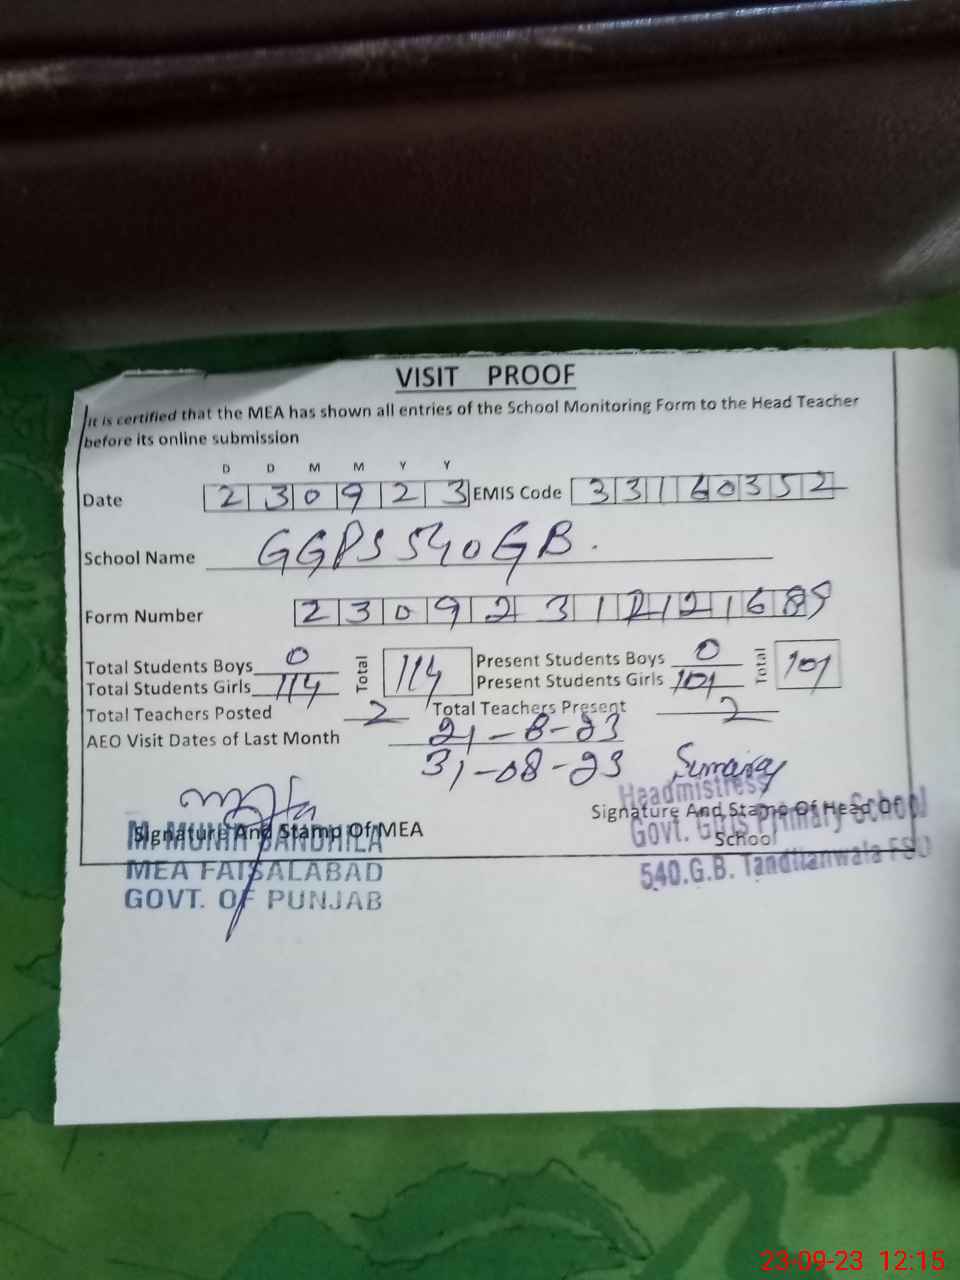 VISIT PROOF
It is certified that the MEA has shown all entries of the School Monitoring Form to the Head Teacher
before its online submission
D D M M Y Y
Date 2 3 0 9 2 3 EMIS Code 3 3 1 6 0 3 5 2
School Name GGPS 540 GB.
Form Number 2 3 0 9 2 3 1 2 1 2 1 6 8 9
Total Students Boys 0 Total 114 Present Students Boys 0 Total 101
Total Students Girls 114 Present Students Girls 101
Total Teachers Posted 2 Total Teachers Present 2
AEO Visit Dates of Last Month 21-8-23
31-08-23
Sumaira
Headmistress
Signature And Stamp Of MEA
Signature And Stapm Of Head Of
School
Govt. Girls Primary School
540.G.B. Tandlianwala FSD
MEA FAISALABAD
GOVT. OF PUNJAB
23-09-23 12:15